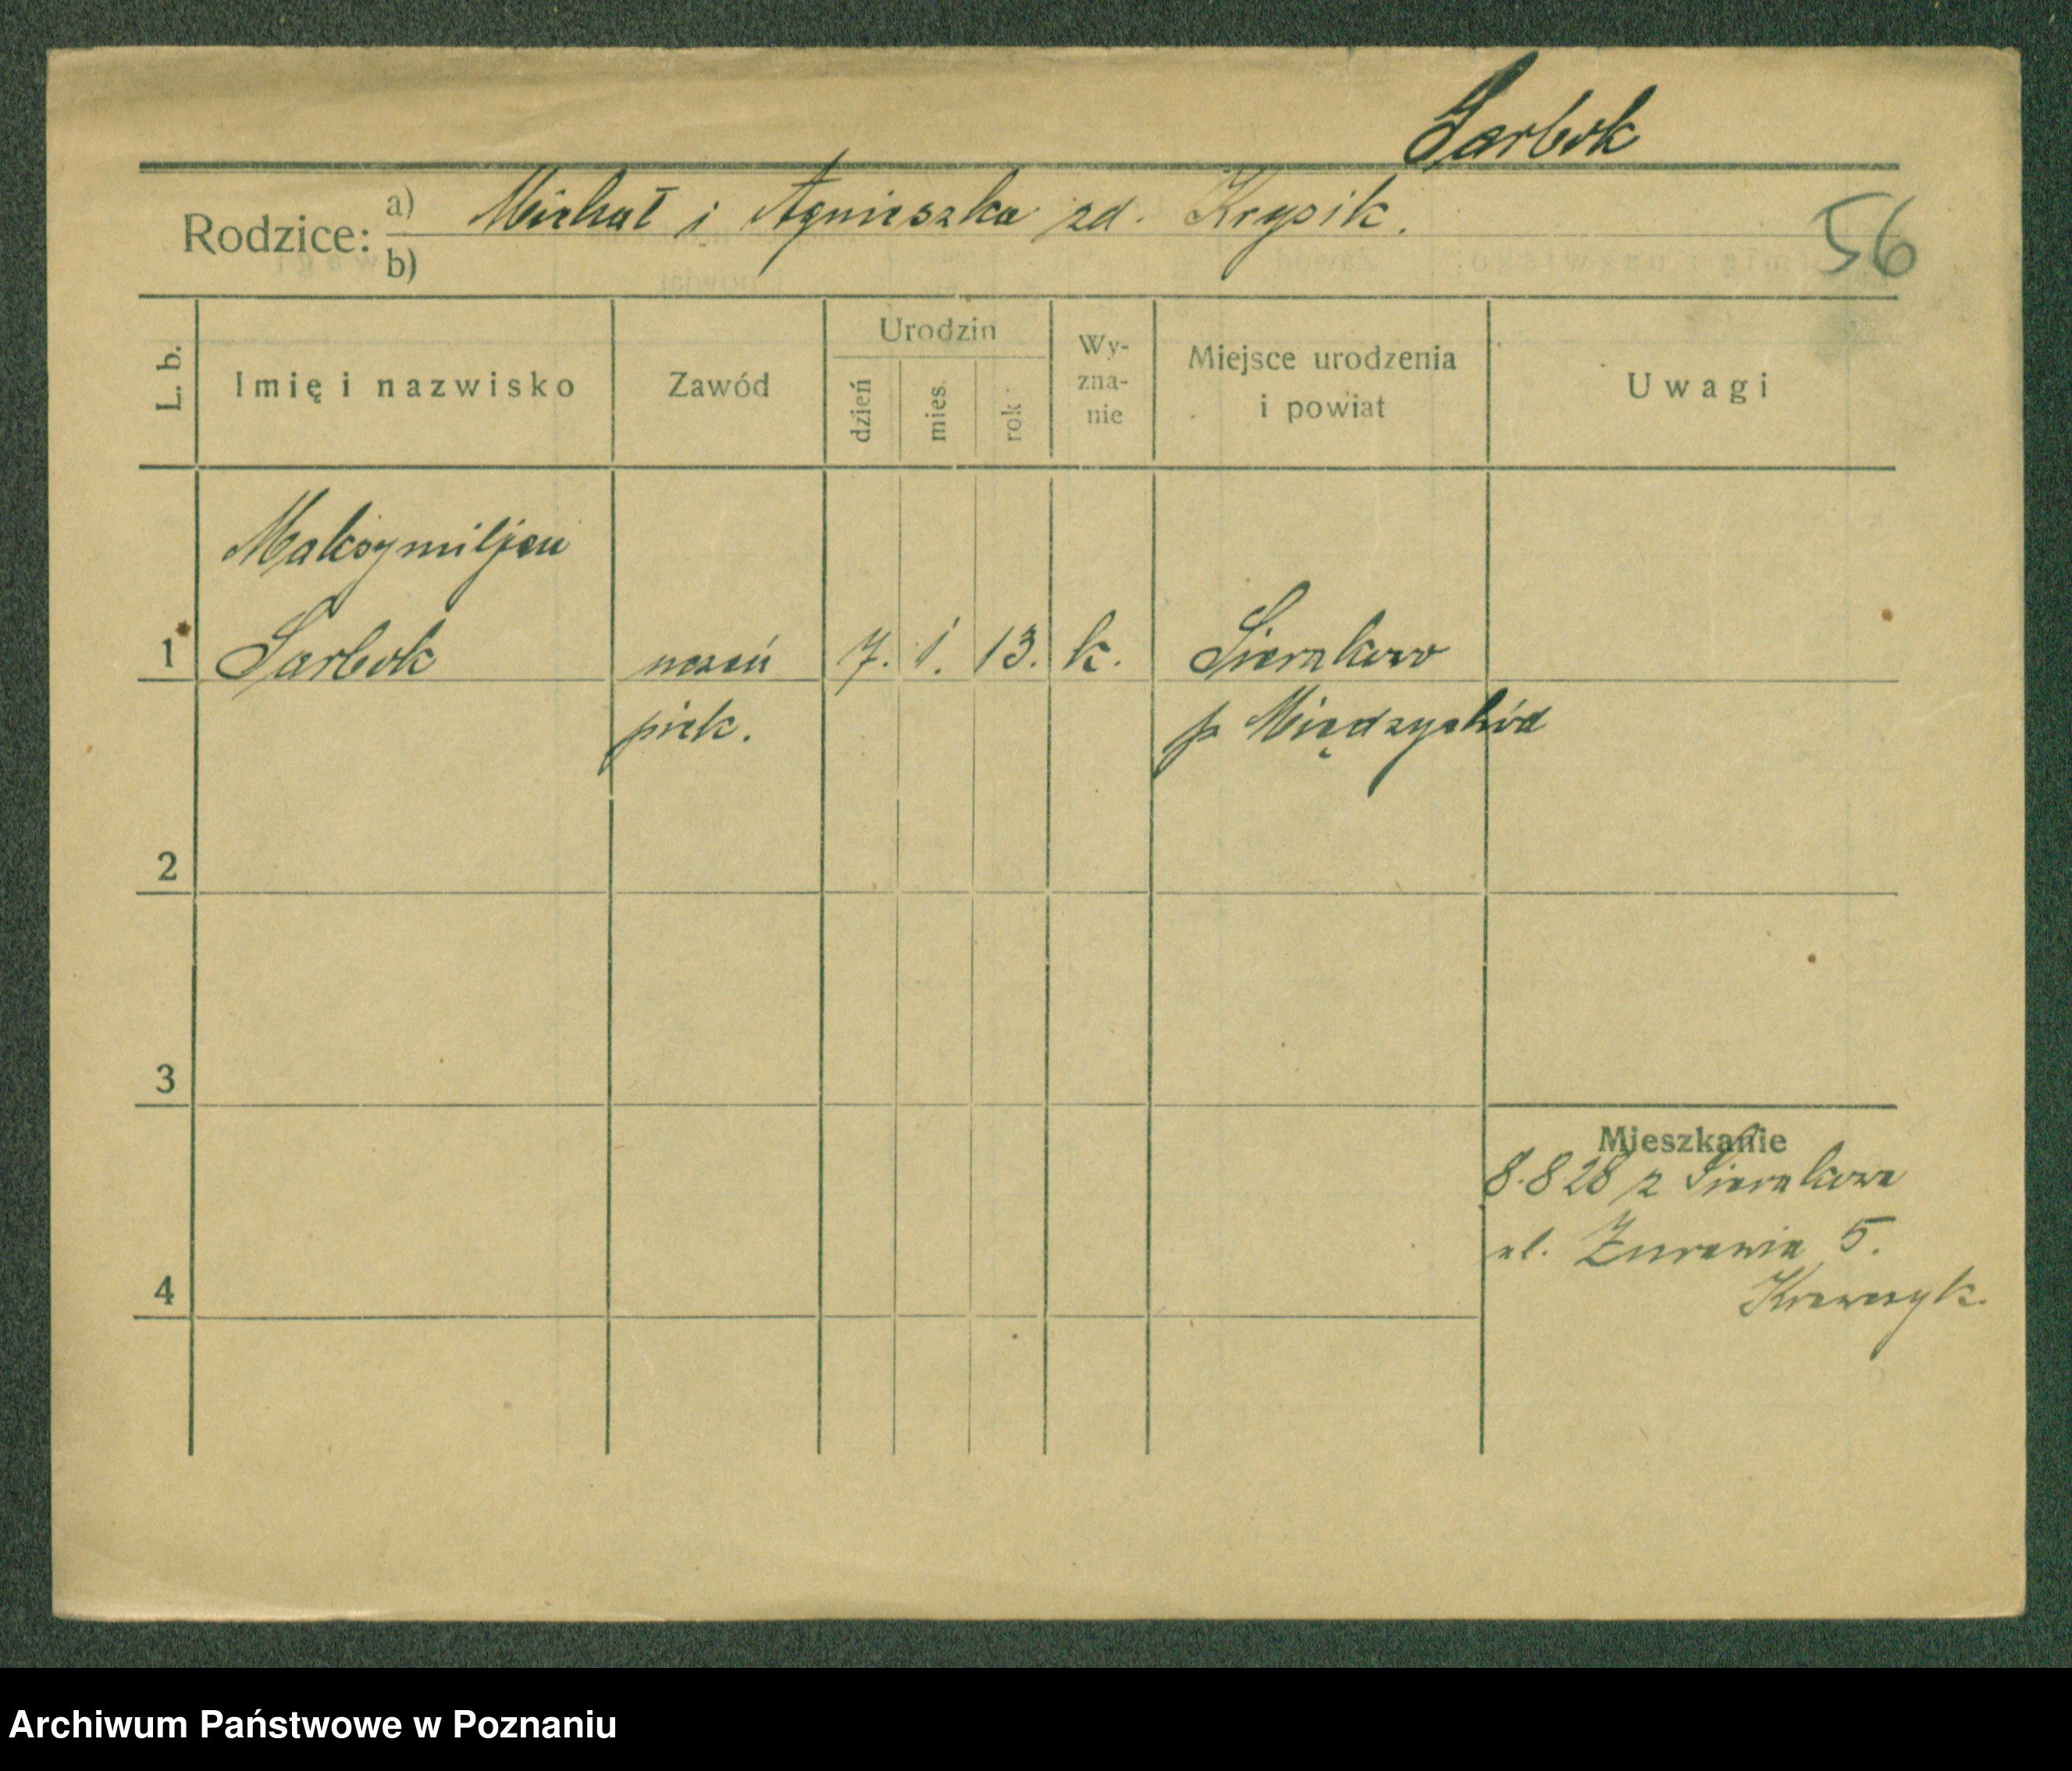 Sarbok
Rodzice: a) Michał i Agnieszka zd. Krysik.
b)
56
L. b.
Imię i nazwisko
Zawód
Urodzin
dzień
mies.
rok
Wy-
zna-
nie
Miejsce urodzenia
i powiat
Uwagi
Maksymiljan
1 Sarbok uczeń 7. 1. 13. k. Sierakowo
piek. p Międzychód
2
3
Mieszkanie
8.8 28 z Sierakowa
ul. Żurawia 5.
4
Krawczyk.
Archiwum Państwowe w Poznaniu